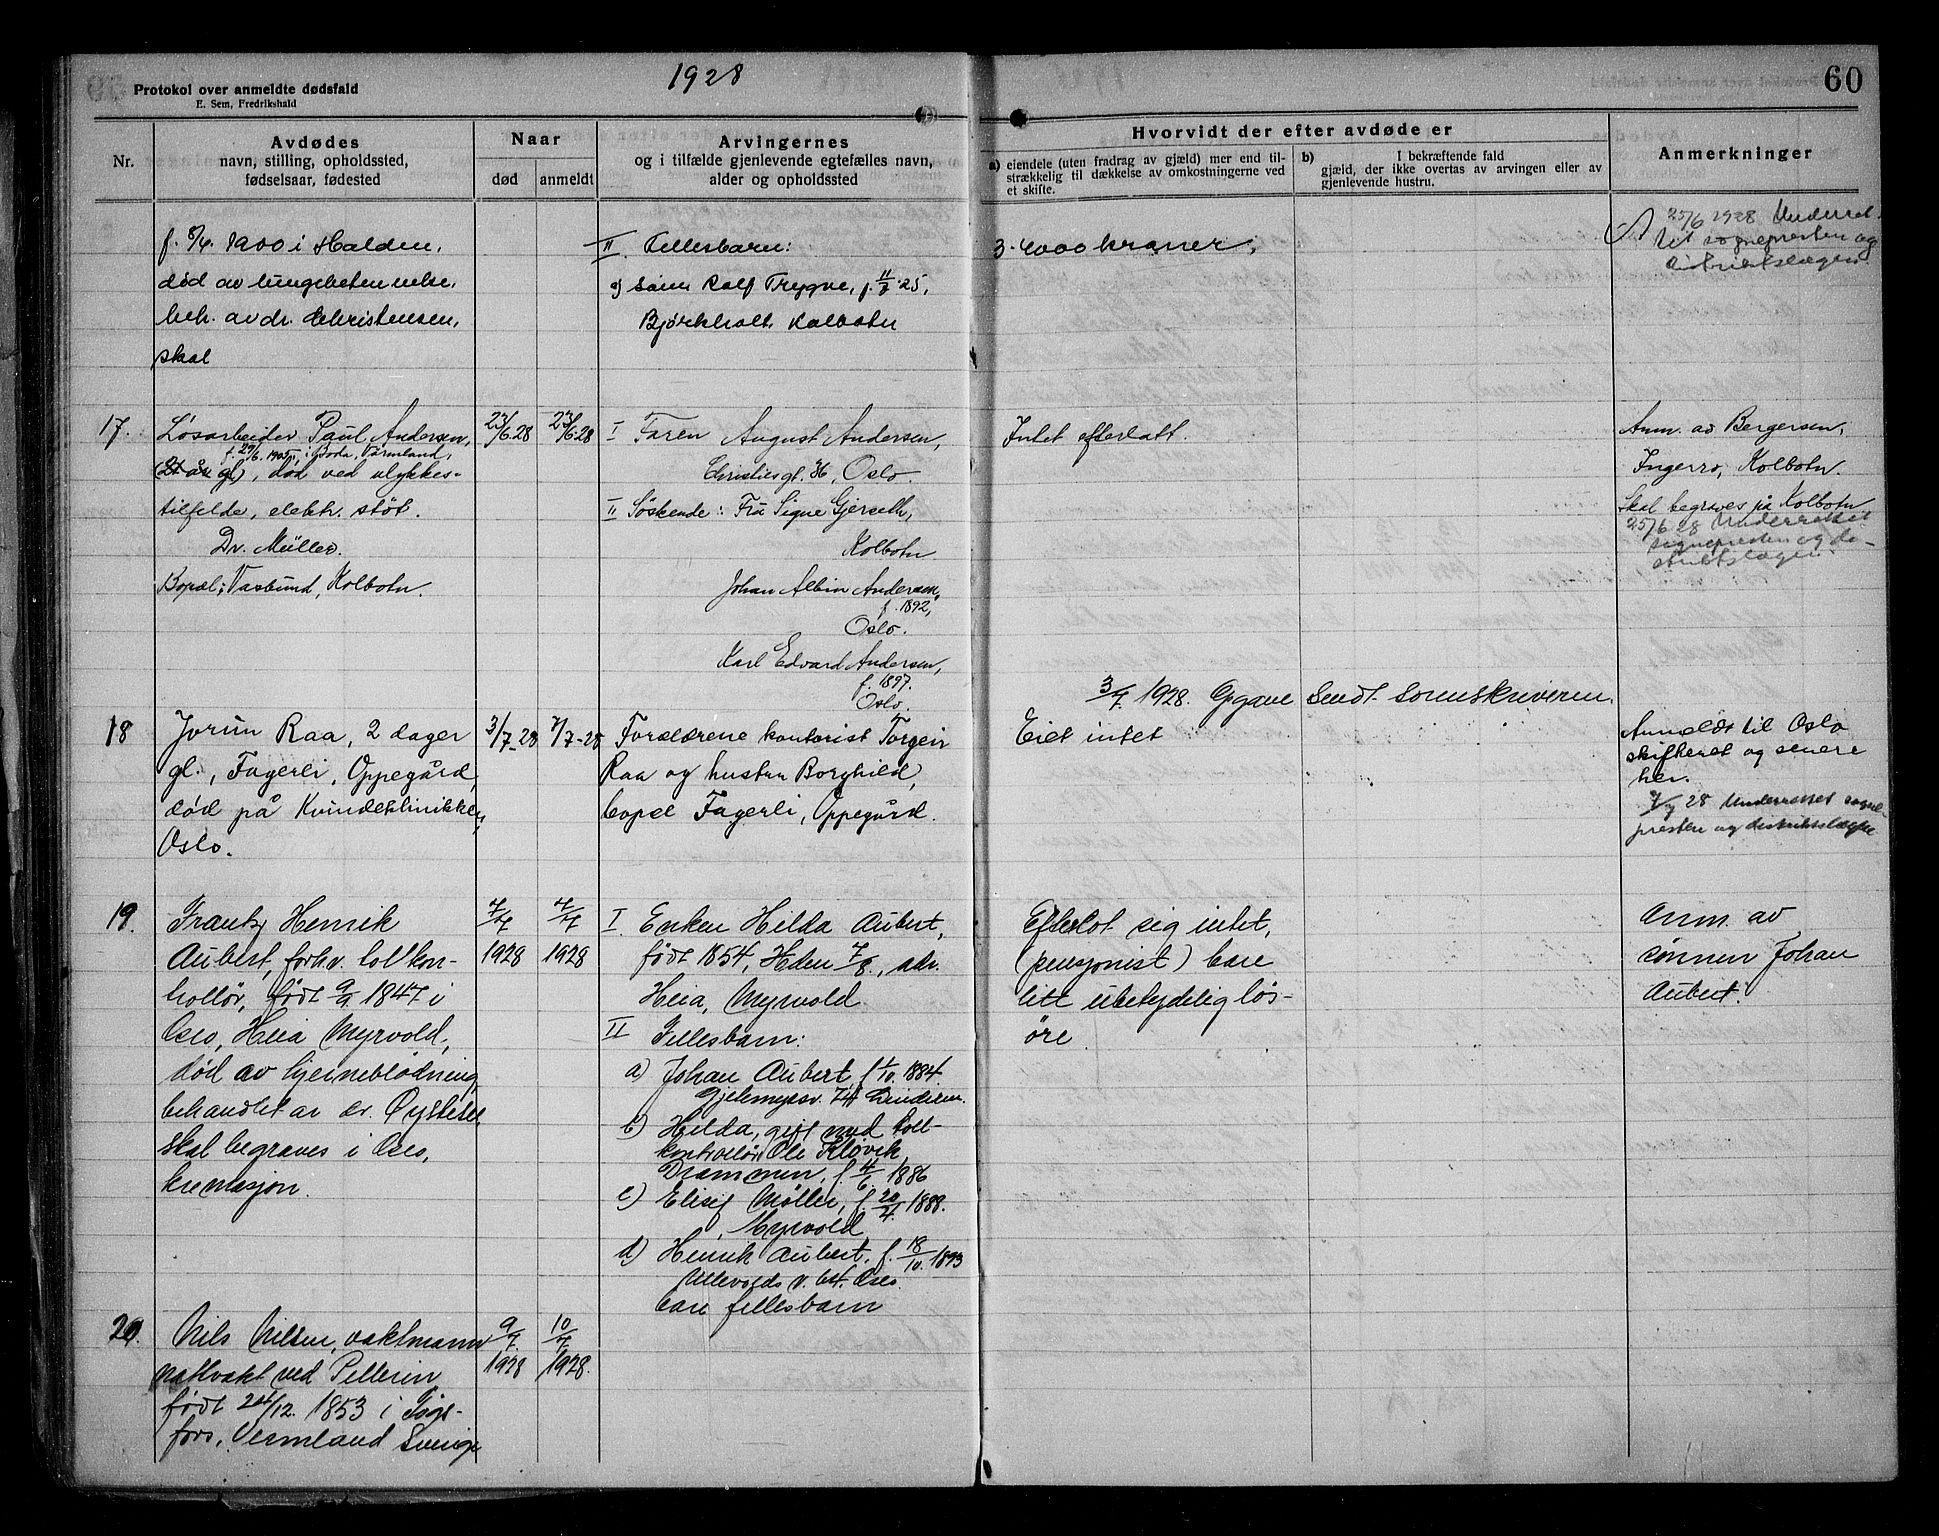 1928
60
Protokol over anmeldte dødsfald
E. Sem, Fredrikshald
Nr.
Avdødes
navn, stilling, opholdssted,
fødselsaar, fødested
Naar
død
anmeldt
Arvingernes
og i tilfælde gjenlevende egtefælles navn,
alder og opholdssted
Hvorvidt der efter avdøde er
a) eiendele (uten fradrag av gjæld) mer end til-
strækkelig til dækkelse av omkostningerne ved
et skifte.
b) I bekræftende fald
gjæld, der ikke overtas av arvingen eller av
gjenlevende hustru.
Anmerkninger
1900 i Halden,
død av lungebetennelse,
beh. av dr. Christensen,
skal
II. Fellesbarn:
a) sønn Rolf Trygve, f. 25,
Bjørkholt Kolbotn
3-4000 kroner,
25/6 1928 Underret.
til sognepresten og
distriktslægen.
17.
Løsarbeider Paul Andersen,
f. 29/6. 1905, i Boda, Värmland,
gl), død ved ulykkes-
tilfelde, elektr. støt.
Dr. Müller.
Bopel: Vasbund, Kolbotn.
23/6.28
23/6.28
I Faren August Andersen,
Christiesgt. 36, Oslo.
II Søskende: Fru Signe Gjerseth,
Kolbotn
Johan Albin Andersen,
f. 1892,
Oslo.
Karl Edvard Andersen,
f. 1897.
Oslo.
Intet efterlatt.
Anm. av Bergersen,
Ingerro, Kolbotn.
Skal begraves på Kolbotn
25/6 28 Underrettet
sognepresten og di-
striktslægen.
3/7 1928. Opgave sendt sorenskriveren.
18
Jorun Raa, 2 dager
gl., Fagerli, Oppegård,
død på Kvindeklinikken,
Oslo.
3/7-28
7/7-28
Forældrene kontorist Torgeir
Raa og hustru Borghild,
bopel Fagerli, Oppegård.
Eiet intet
Anmeldt til Oslo
skifteret og senere
her.
28 Underrettet sogne-
presten og distriktslægen
19.
Frantz Henrik
Aubert, forhv. tollkon-
trollør, født 9/9 1847 i
Oslo, Heia Myrvold,
død av hjerneblødning,
behandlet av dr.
skal begraves i Oslo,
kremasjon.
7/7
1928
7/7
1928
I. Enken Hilda Aubert,
født 1854, 7/8., adr.
Heia, Myrvold
II Fellesbarn:
a) Johan Aubert, f 1/10. 1884.
Gjetemyrsv. 74 Lindern.
b) Hilda, gift med toll-
kontrollør Ole Kløvik,
Drammen, f. 4/6. 1886
c) Elisif Møller, f. 20/4. 1888.
Myrvold
d) Henrik Aubert, f. 18/10. 1893
Ullevolds v. Oslo.
bare fellesbarn
Efterlot sig intet,
(pensjonist) bare
litt ubetydelig løs-
øre.
Anm. av
sønnen Johan
Aubert.
20.
Nils Nilsen, vaktmann
nattvakt ved Pellerin
født 24/12. 1853 i
fors, Vermland Sverige
9/7.
1928
10/7
1928.